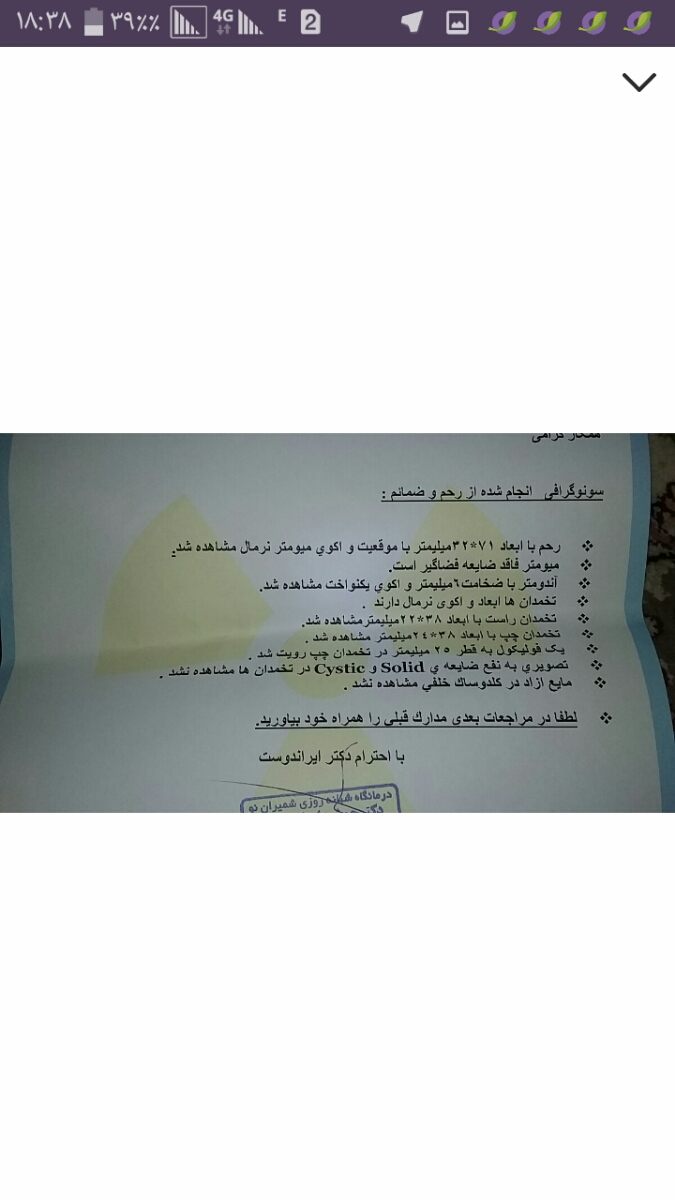 ۱۸:۳۸ ۳۹٪٪ 4G E 2
همکار گرامی
سونوگرافی انجام شده از رحم و ضمائم :
❖ رحم با ابعاد ۷۱*۳۲میلیمتر با موقعیت و اکوي میومتر نرمال مشاهده شد.
❖ میومتر فاقد ضایعه فضاگیر است.
❖ آندومتر با ضخامت٦میلیمتر و اکوي یکنواخت مشاهده شد.
❖ تخمدان ها ابعاد و اکوی نرمال دارند .
❖ تخمدان راست با ابعاد ۳۸*۲۲میلیمترمشاهده شد.
❖ تخمدان چپ با ابعاد ۳۸*۲٤میلیمتر مشاهده شد .
❖ یک فولیکول به قطر ۲۵ میلیمتر در تخمدان چپ رویت شد .
❖ تصویري به نفع ضایعه ي Solid و Cystic در تخمدان ها مشاهده نشد .
❖ مایع ازاد در کلدوساك خلفي مشاهده نشد .
❖ لطفا در مراجعات بعدی مدارك قبلی را همراه خود بیاورید.
با احترام دکتر ایراندوست
درمانگاه شبانه روزی شمیران نو
دکتر